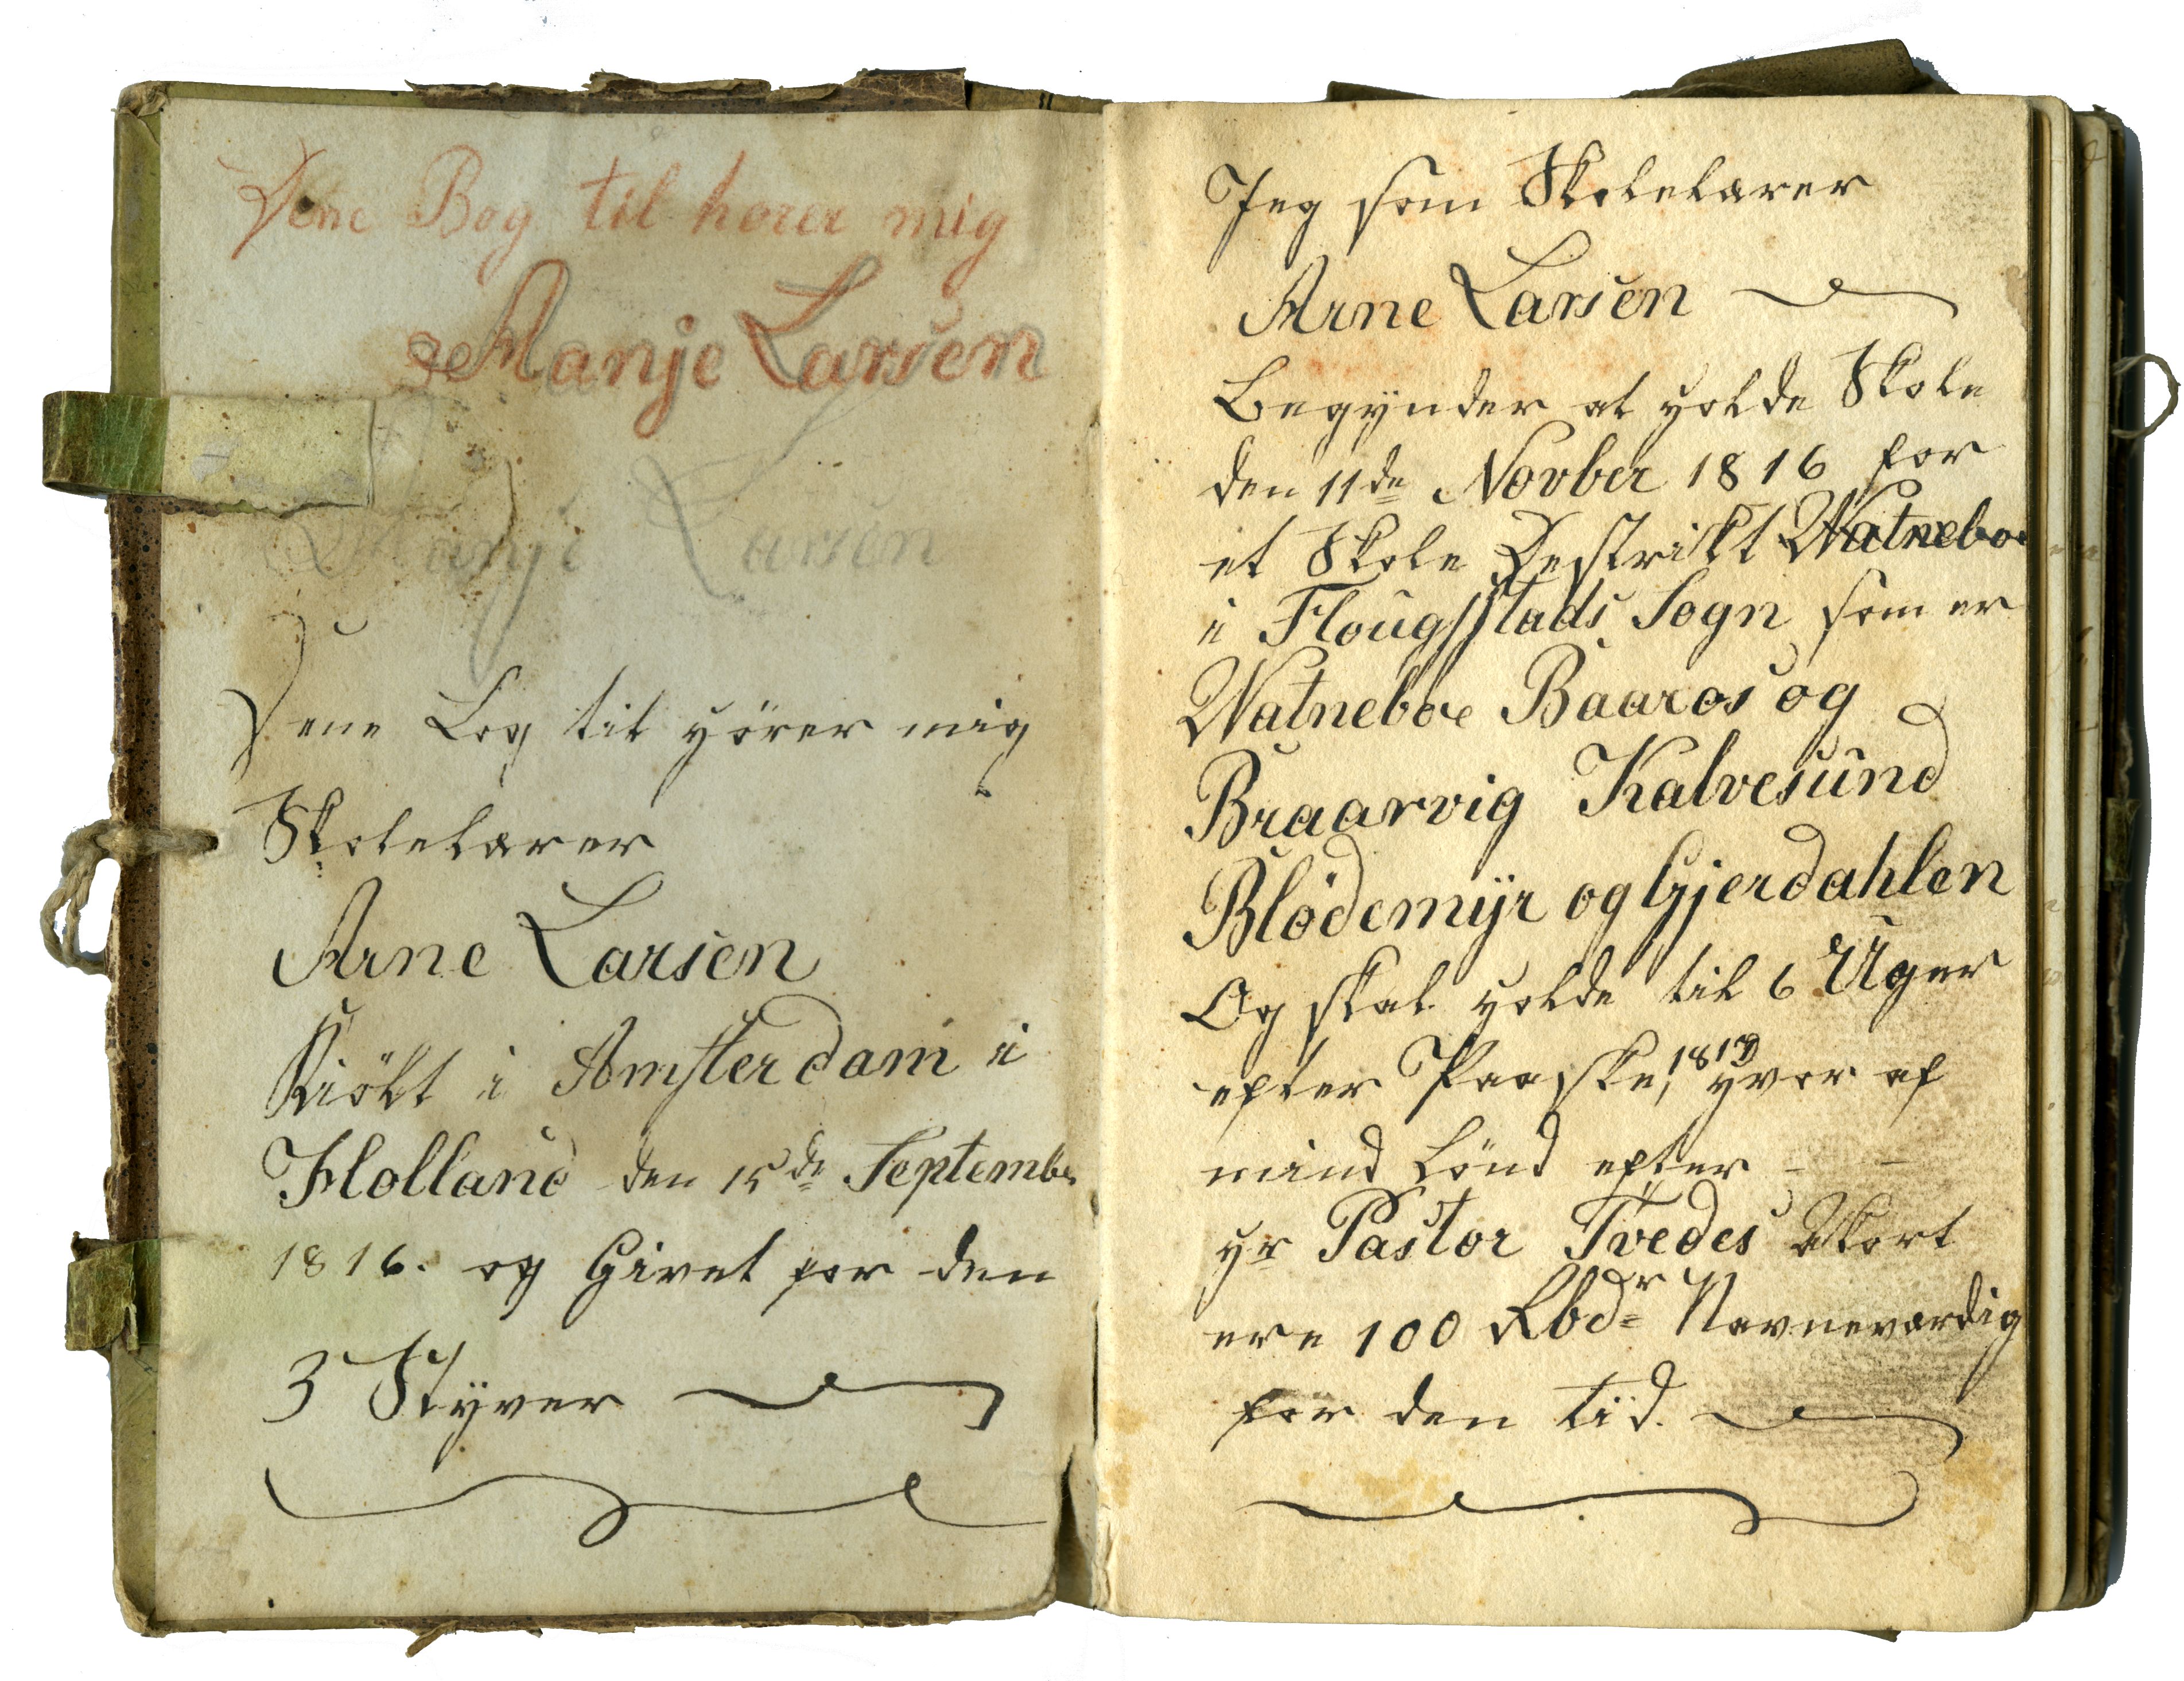 Dene Bog til hører mig
Manje Larsen
Manje Larsen
Dene Bog til hører mig
Skolelærer
Arne Larsen
Kiöbt i Amsterdam i
Holland den 15de Septembr
1816. og Givet for den
3 Styver
Jeg som Skolelærer
Arne Larsen
Begÿnder at holde Skole
den 11de Novber 1816 for
et Skole Destrikt Watneboe
i Hougsstads Sogn som er
Watneboe Baaros og
Braarvig Kalvesund
Blödemÿr og Gjerdahlen
Og skal holde til 6 Uger
efter Paaske, 1817 hvor af
mind Lönd efter
Hr Pastor Tvedes
ere 100 Rbdr Navneværdig
for den tid.